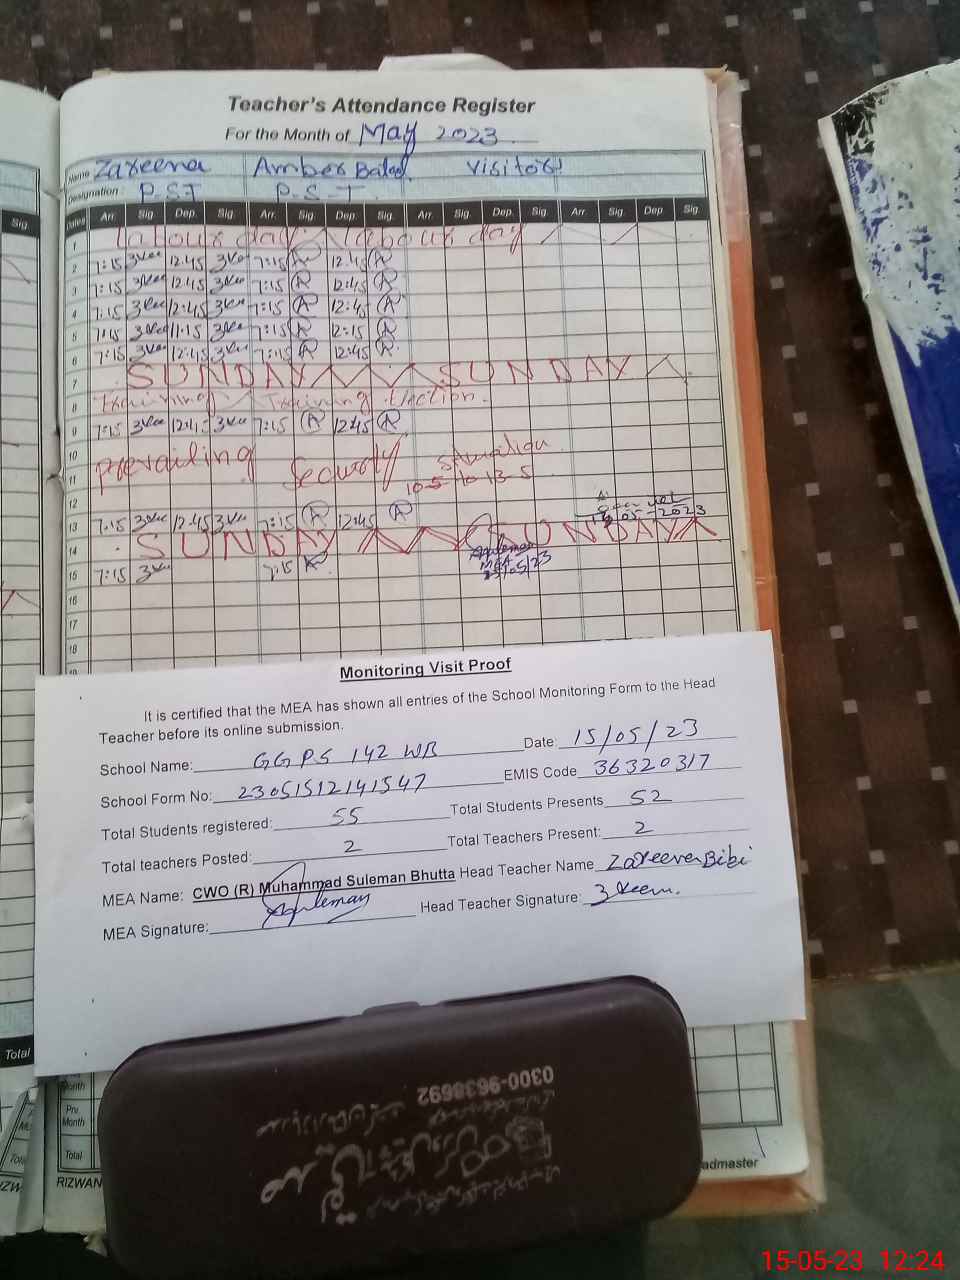 Sig.
Total
Teacher's Attendance Register
For the Month of May 2023
Name Zareena Amber Batool Visitors
Designation: P.S.T P.S.T
Dates Arr. Sig. Dep. Sig. Arr. Sig. Dep. Sig. Arr. Sig. Dep. Sig. Arr. Sig. Dep. Sig.
1 Labour day Labour day
2 7:15 12:45 7:15 12:45
3 7:15 12:45 7:15 12:45
4 7:15 12:45 7:15 12:45
5 7:15 11:15 7:15 12:15
6 7:15 12:45 7:15 12:45
7 SUNDAY SUNDAY
8 training Training Election.
9 7:15 12:45 7:15 12:45
10
11 Prevailing Security Situation
10-5 to 13-5
12
13 7:15 12:45 7:15 12:45
14 SUNDAY SUNDAY
MEA
15/05/23
15 7:15 7:15
16
17
18
Monitoring Visit Proof
It is certified that the MEA has shown all entries of the School Monitoring Form to the Head
Teacher before its online submission.
School Name: GGPS 142 WB Date: 15/05/23
School Form No: 23051512141547 EMIS Code 36320317
Total Students registered: 55 Total Students Presents 52
Total teachers Posted: 2 Total Teachers Present: 2
MEA Name: CWO (R) Muhammad Suleman Bhutta Head Teacher Name Zareena Bibi
MEA Signature: Head Teacher Signature:
0300-9638692
Month
Pre. Month
Total
RIZWAN
admaster
15-05-23 12:24